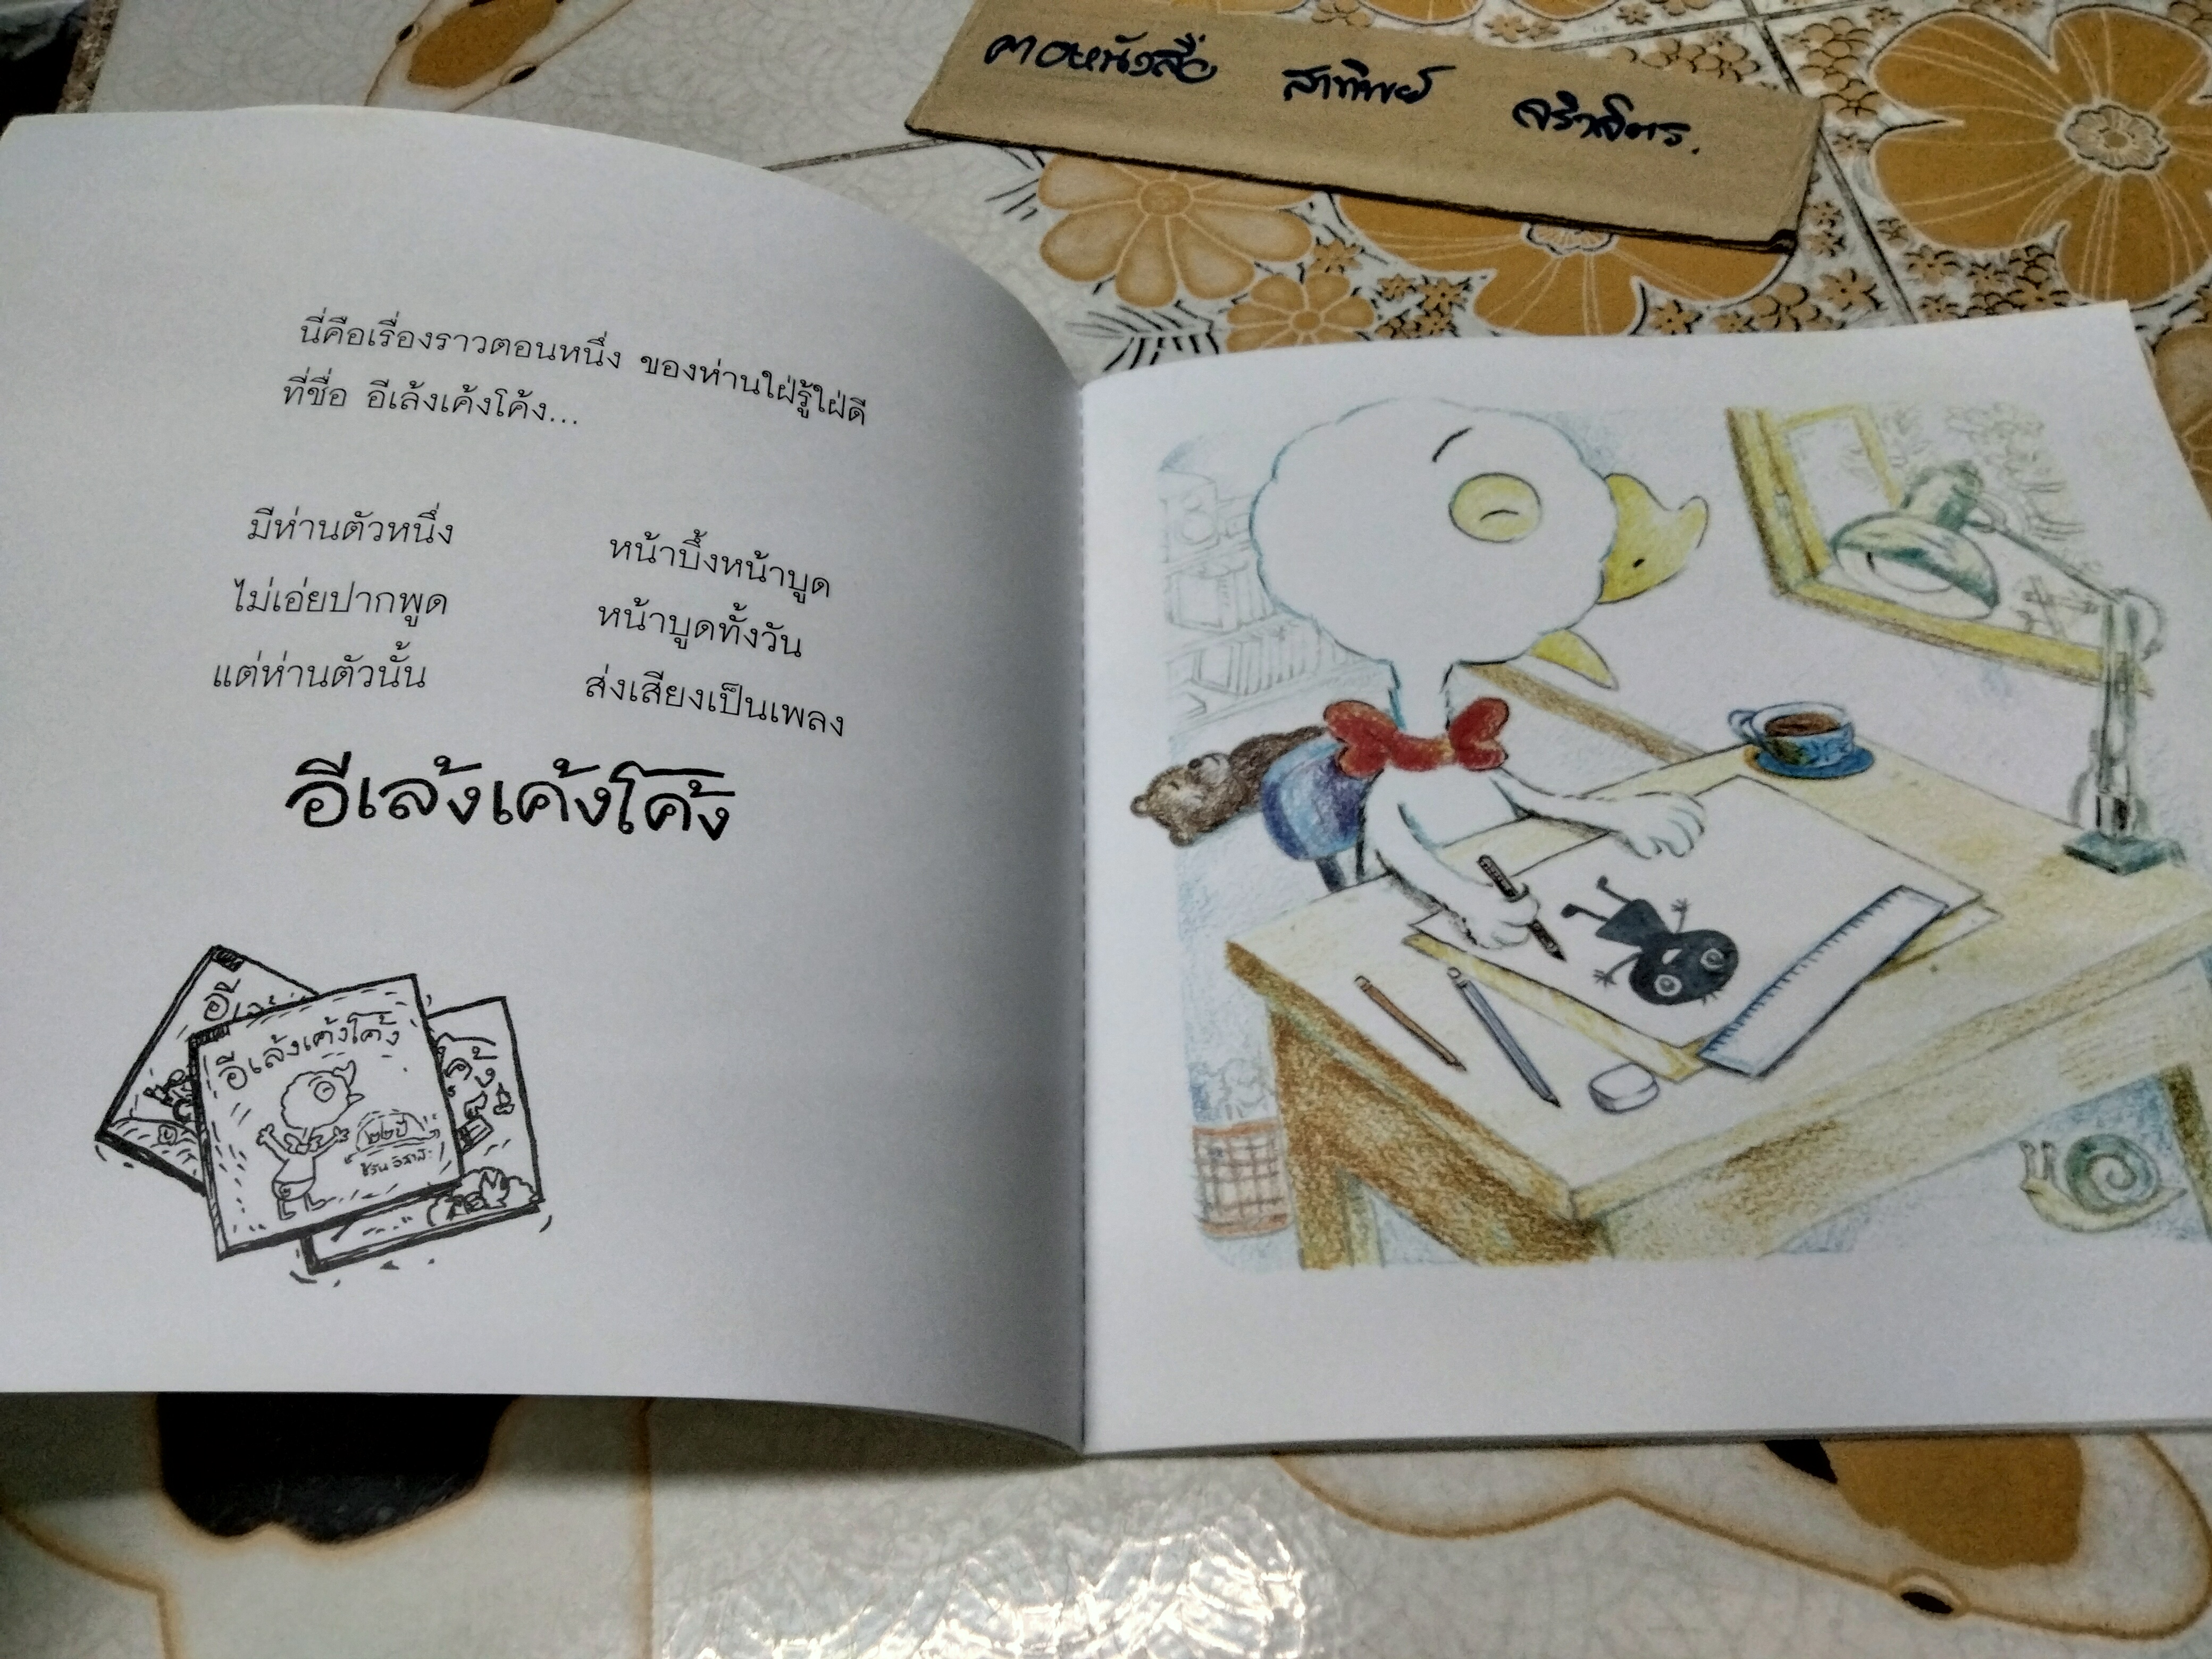 คอหนังสือ สาทิพย์
นี่คือเรื่องราวตอนหนึ่ง ของห่านใฝ่รู้ใฝ่ดี
ที่ชื่อ อีเล้งเค้งโค้ง...
มีห่านตัวหนึ่ง หน้าบึ้งหน้าบูด
ไม่เอ่ยปากพูด หน้าบูดทั้งวัน
แต่ห่านตัวนั้น ส่งเสียงเป็นเพลง
อีเล้งเค้งโค้ง
อีเล้งเค้งโค้ง
๒๒ปี